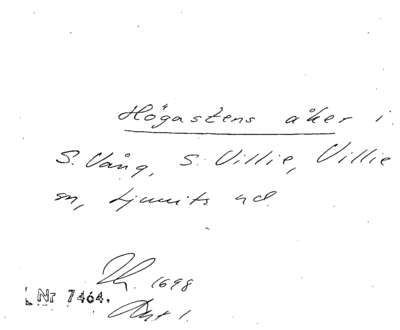 Högastens åker i
S. Vång, S. Villie, Villie
sn, Ljunits hd.
1698
Nr 7464.
Akt 1.